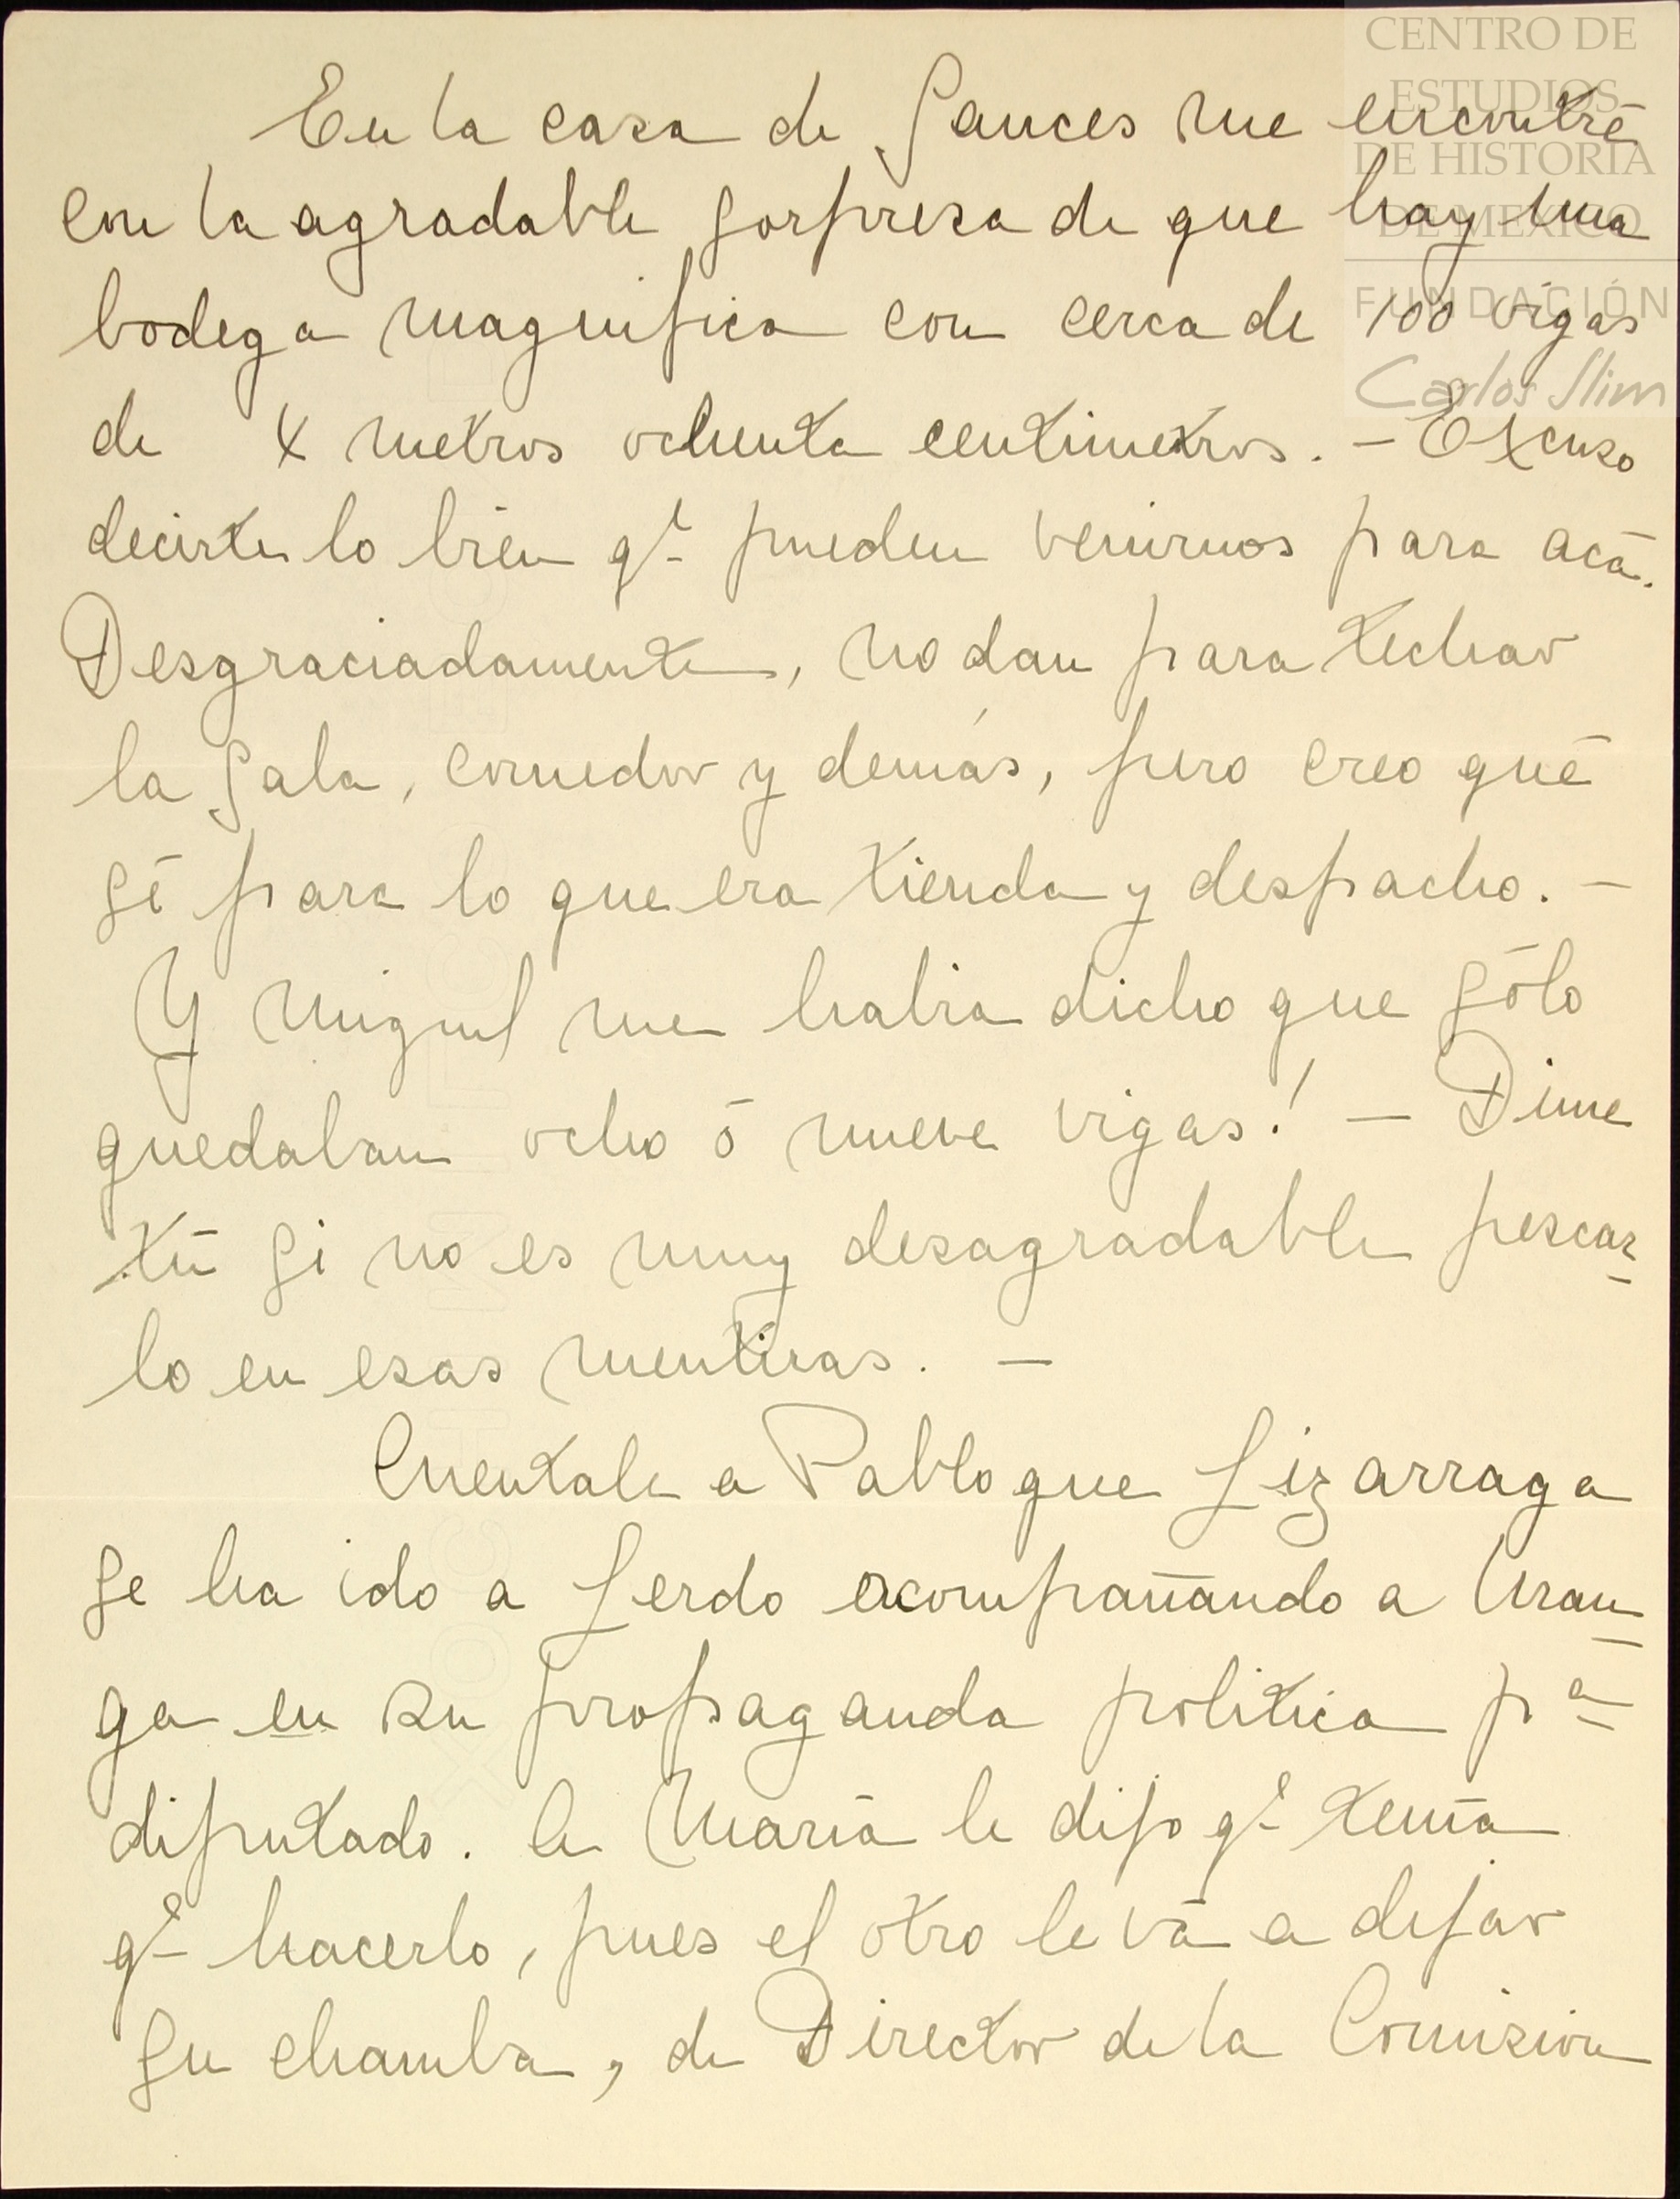 CENTRO DE
ESTUDIOS
DE HISTORIA
DE MEXICO
FUNDACIÓN
Carlos Slim
En la casa de Sauces me encontré
con la agradable sorpresa de que hay una
bodega magnifica con cerca de 100 vigas
de 4 metros ochenta centimetros. - Excuso
decirte lo bien qe pueden venirnos para acá.
Desgraciadamente, no dan para techar
la sala, comedor y demás, pero creo qué
sé para lo que era tienda y despacho. -
Y Miguel me habia dicho que sólo
quedaban ocho ó nueve vigas! - Dime
tú si no es muy desagradable pescar-
lo en esas mentiras. -
Cuentale a Pablo que Lizarraga
se ha ido a Lerdo acompañando a Uran-
ga en su propaganda politica pa
diputado. A María le dijo qe tenía
qe hacerlo, pues el otro le vá a dejar
su chamba, de Director de la Comision